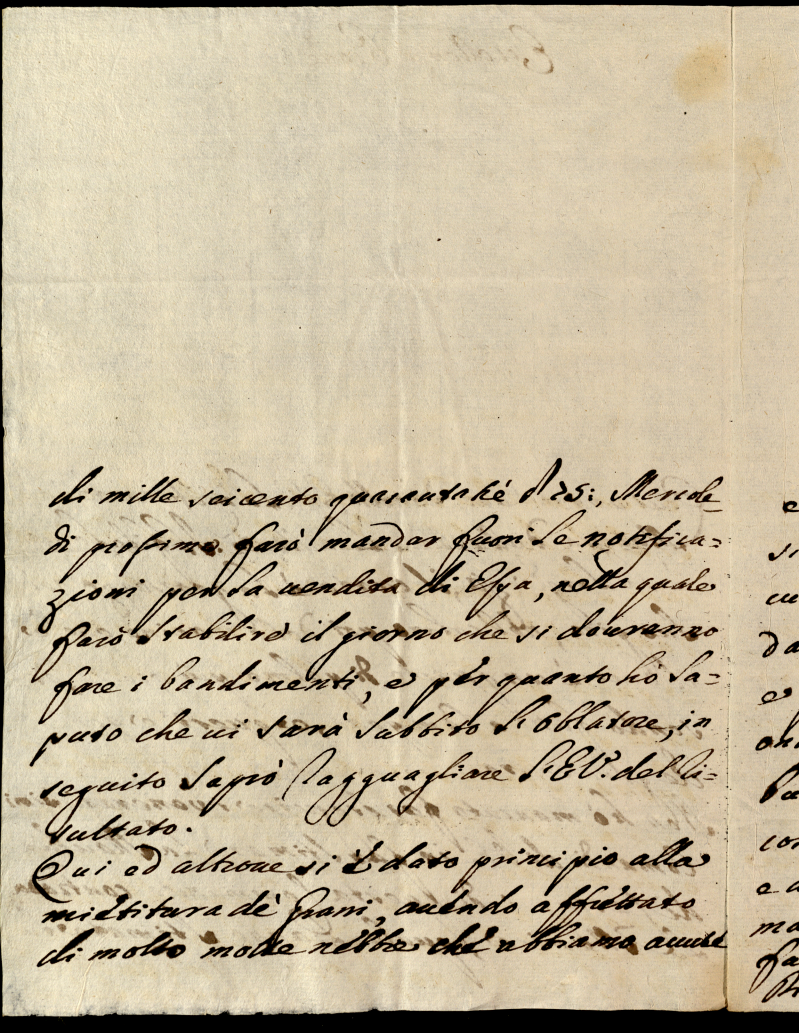 di mille seicento quarantatré e 25:, Mercole-
dì prossimo farò mandar fuori le notifica-
zioni per la vendita di Essa, nella quale
farò stabilire il giorno che si douranno
fare i bandimenti, e per quanto hò sa-
puto che ui sarà subbito l'oblatore, in
seguito saprò ragguagliare l'E.V. del ri-
sultato.
Qui ed altroue si è dato principio alla
mietitura dè Grani, auendo affrettato
di molto molte nebbie che abbiamo auute
e
si
da
e